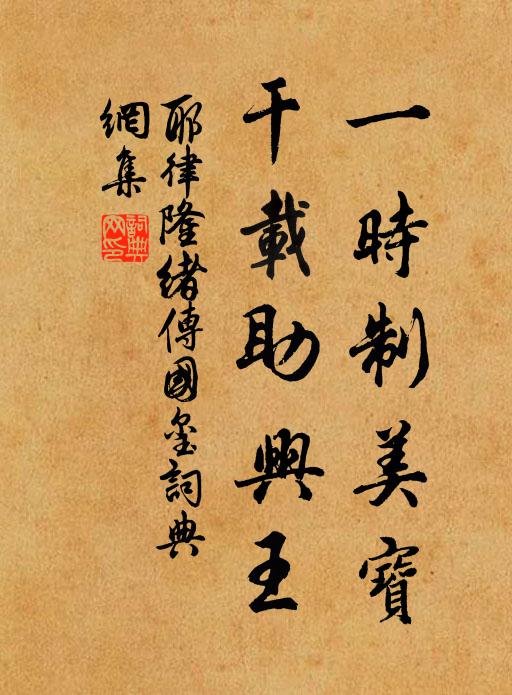 一時制美寶
千載助興王
耶律隆緒傳國璽詞典
網集
詞典網印